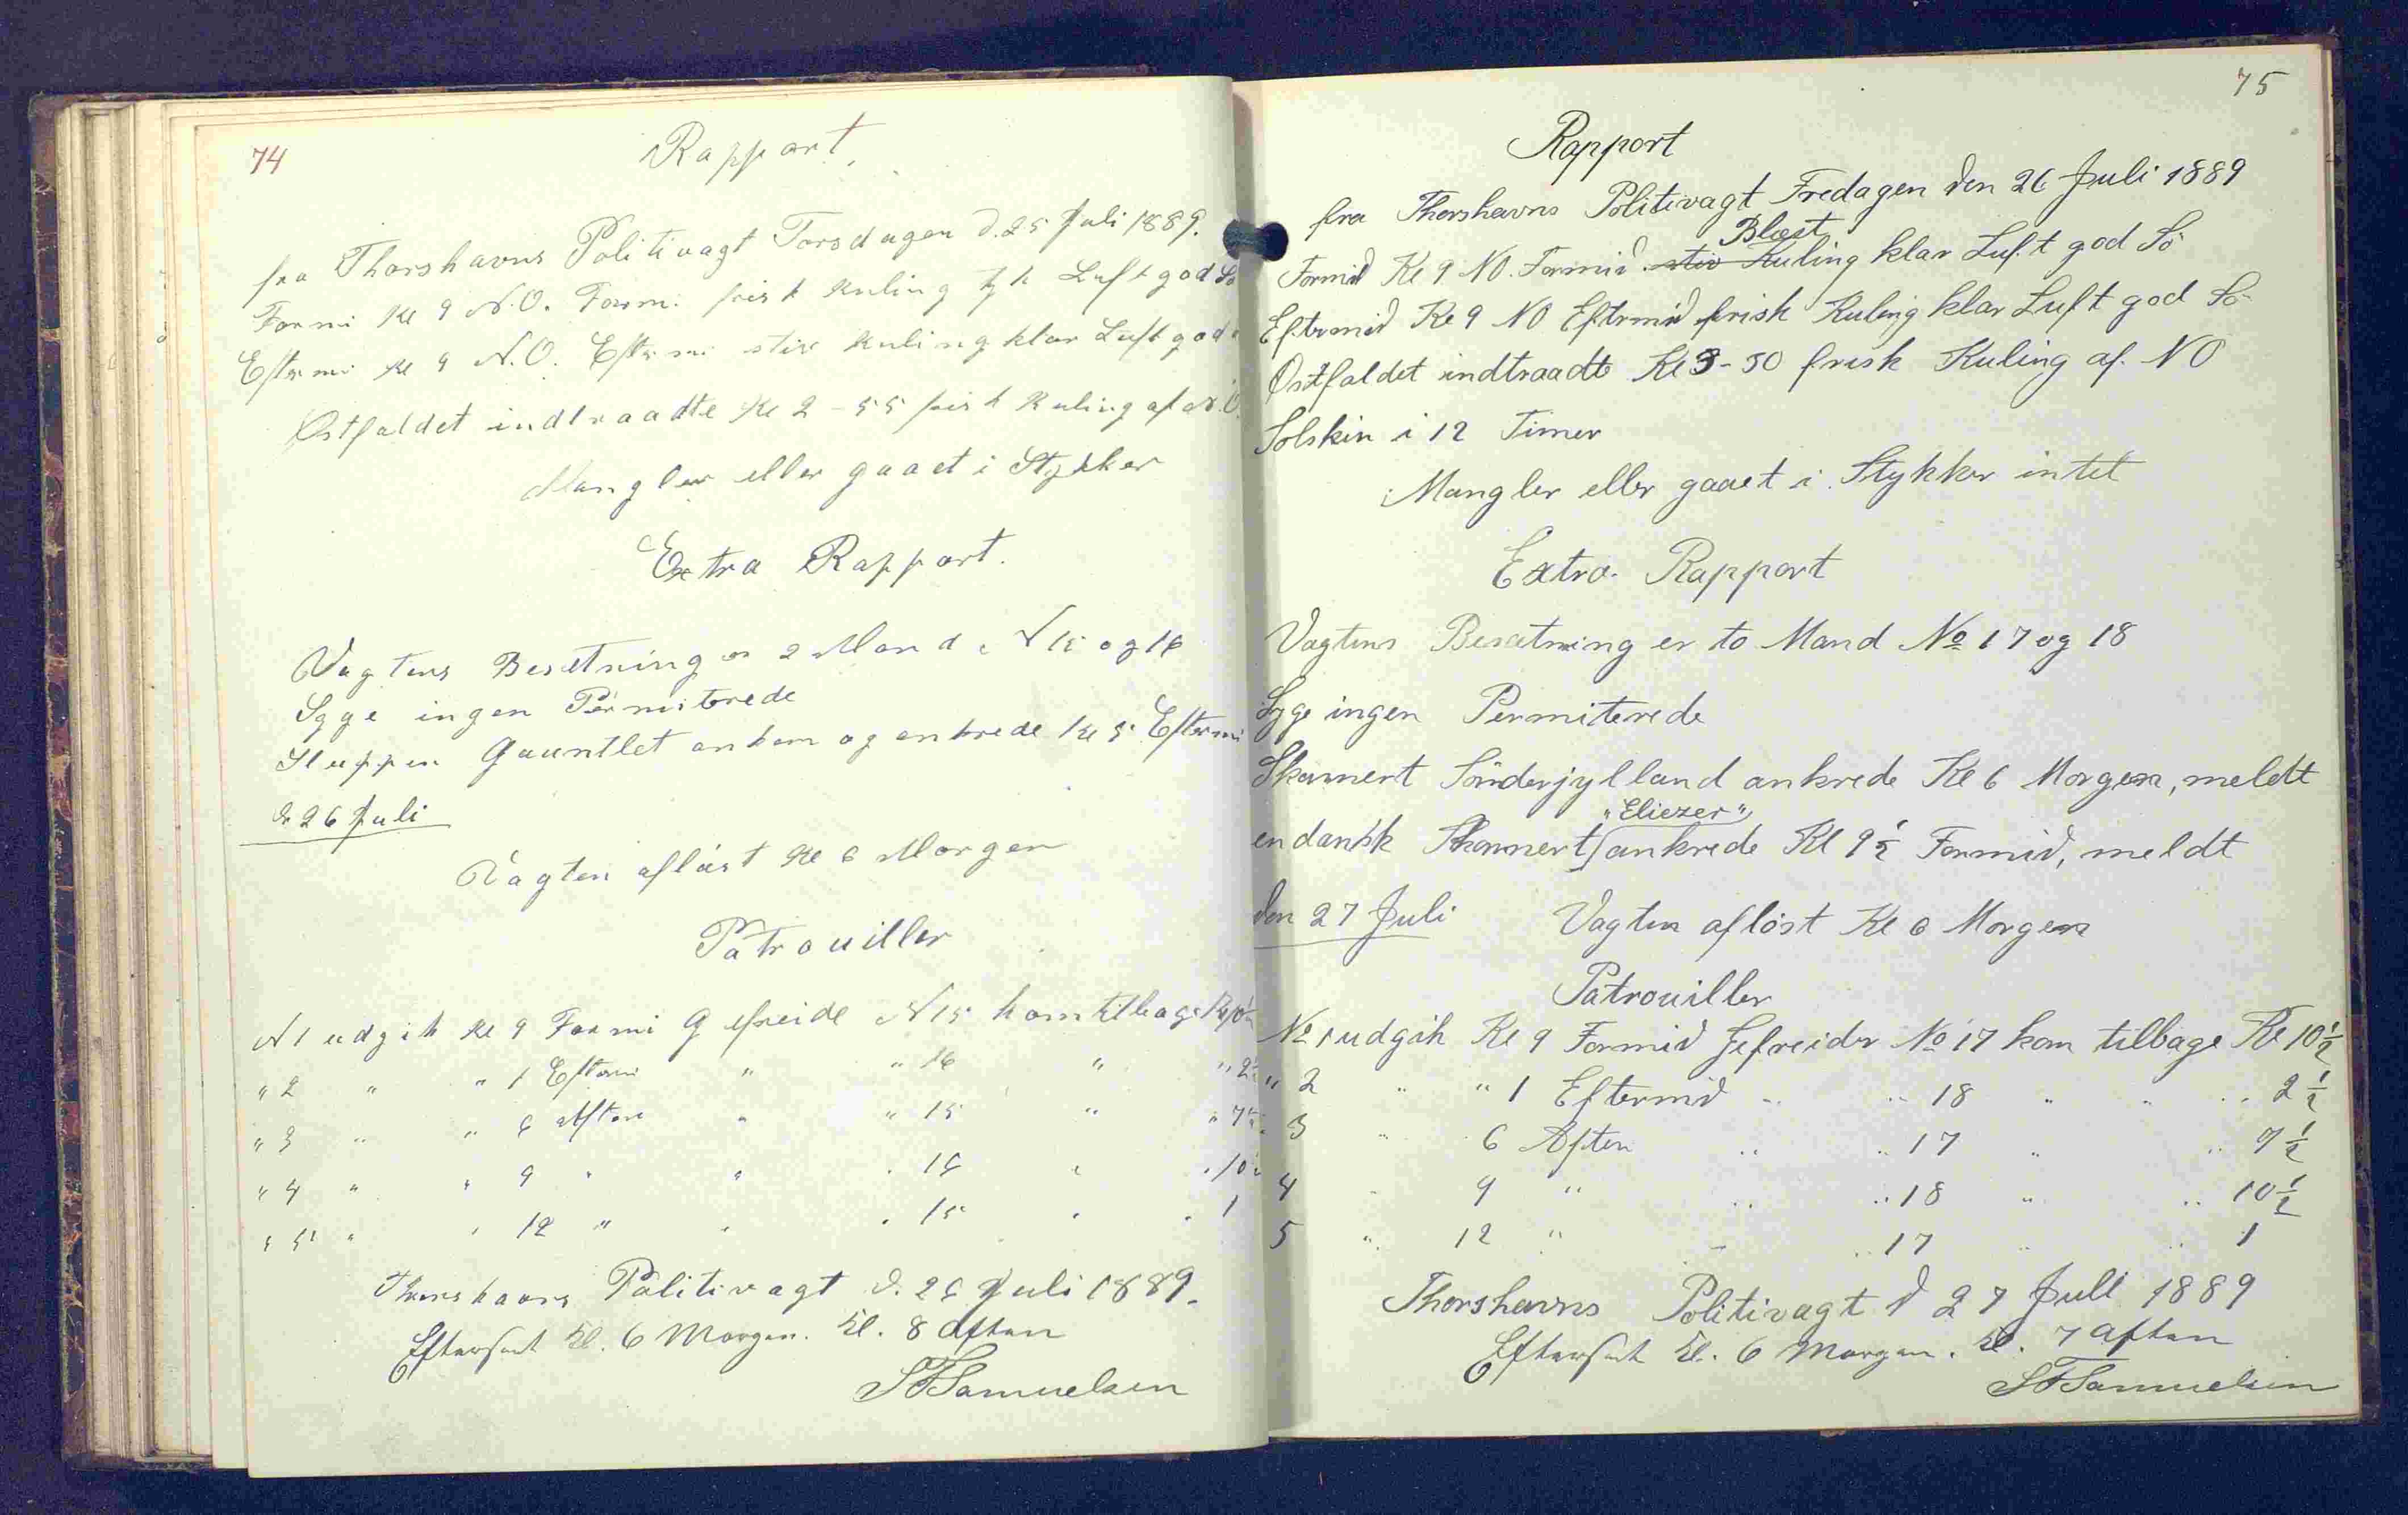 74
Rapport.
fra Thorshavns Politivagt Torsdagen d. 25 Juli 1889.
Formi Kl 9 N.O. Formi. frisk Kuling tyk Luft god Sö
Eftermi Kl 9 N.O. Eftermi stiv Kuling klar Luft god
Østfaldet indtraadte Kl 2-55 frisk Kuling af N.O.
Mangler eller gaaet i Stykker
Extra Rapport.
Vagtens Besetning er 2 Mand N 15 og 16
Syge ingen Permiterede
Sluppen Gauntlet ankom og ankrede Kl 5 Eftermi
d. 26 Juli
Vagten aflöst Kl 6 Morgen
Patrouiller
N 1 udgik Kl 9 Formi Gefreide N 15 kom tilbage Kl 10½
" 2 " " 1 Eftermi " " 16 " " 2½
" 3 " " 6 Aften " " 15 " " 7½
" 4 " " 9 " " " 16 " " 10½
" 5 " " 12 " " " 15 " " 1
Thorshavns Politivagt d. 26 Juli 1889.
Efterset Kl. 6 Morgen. Kl. 8 Aften
SFSamuelsen
75
Rapport
fra Thorshavns Politivagt Fredagen den 26 Juli 1889
Blæst
Formid Kl 9 NO. Formid. stiv Kuling klar Luft god Sö
Eftermid Kl 9 NO Eftrmid frisk Kuling klar Luft god Sö
Østfaldet indtraadte Kl 3-50 frisk Kuling af. NO
Solskin i 12 Timer
Mangler eller gaaet i Stykker intet
Extra Rapport
Vagtens Besætning er to Mand No 17 og 18
Syge ingen Permiterede
Skonnert Sönderjylland ankrede Kl 6 Morgen, meldt
"Eliezer"
en dansk Skonnert ankrede Kl 9½ Formid, meldt
den 27 Juli Vagten aflöst Kl 6 Morgen
Patrouiller
No 1 udgik Kl 9 Formid Gefreider No 17 kom tilbage Kl 10½
" 2 " " 1 Eftermid " " 18 " " " 2½
3 " 6 Aften " " 17 " " 7½
4 " 9 " " " 18 " " 10½
5 " 12 " " " 17 " " 1
Thorshavns Politivagt d 27 Juli 1889
Efterset Kl. 6 Morgen. Kl. 7 Aften
SFSamuelsen